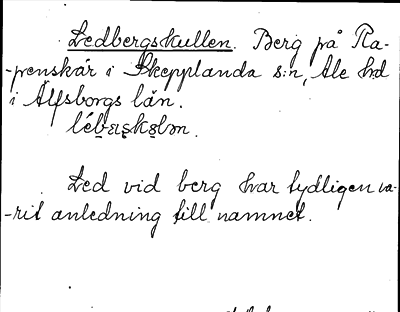 Ledbergskullen. Berg på Ra-
-penskär i Skepplanda s:n, Ale hd
i Älfsborgs län.
Led vid berg har tydligen va-
-rit anledning till namnet.